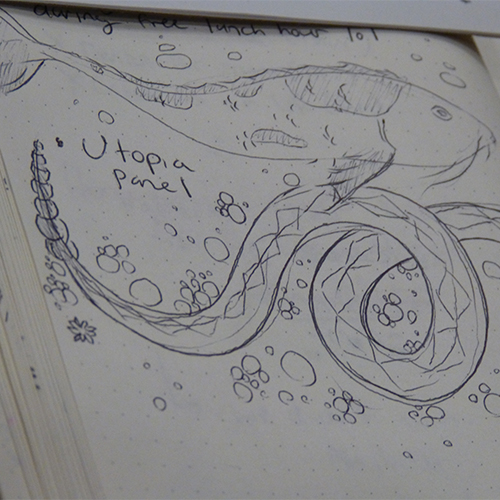 during free lunch hour lol
Utopia
panel